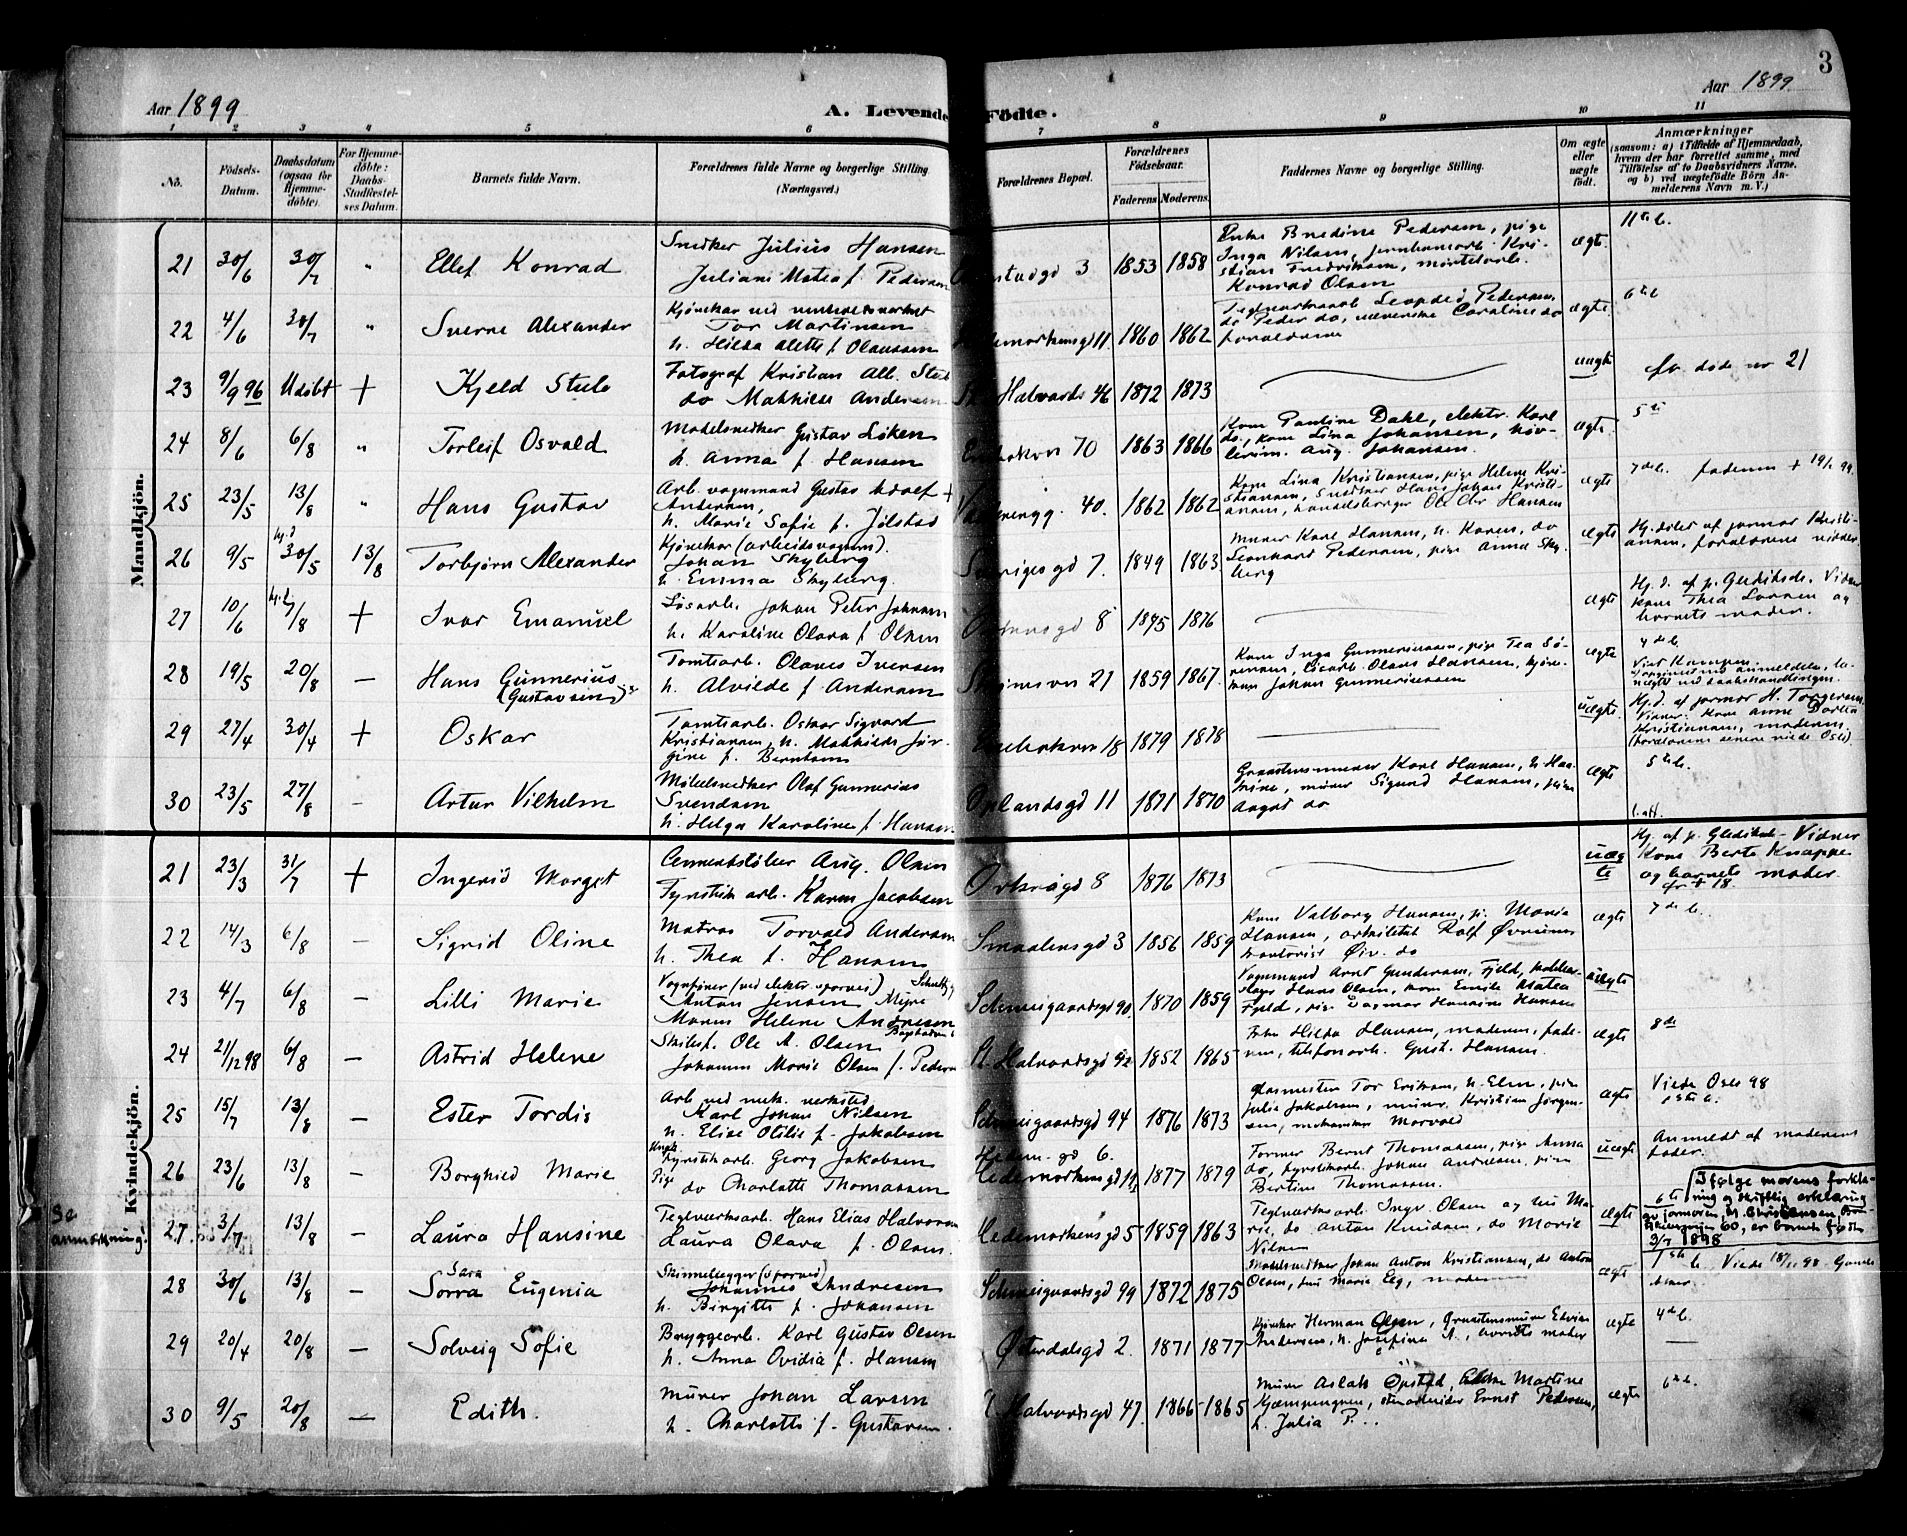 3
Aar 1899
A. Levende Fødte.
Aar 1899
1 2 3 4 5 6 7 8 9 10 11
No.
Fødsels-Datum.
Daabsdatum (ogsaa for Hjemme-døbte).
For Hjemme-døbte: Daabs-Stadfæstel-ses Datum.
Barnets fulde Navn.
Forældrenes fulde Navne og borgerlige Stilling (Næringsvei.)
Forældrenes Bopæl.
Forældrenes Fødselsaar.
Faderens
Moderens.
Faddernes Navne og borgerlige Stilling.
Om ægte eller uægte født.
Anmærkninger
(saasom: a) i Tilfælde af Hjemmedaab, hvem der har forrettet samme, med Tilføielse af to Daabsvidners Navne, og b) ved uægtefødte Børn An-melderens Navn m. V.)
Mandkjön.
21 30/6 30/7 " Ellef Konrad
Snedker Julius Hansen
Juliane Matea f. Pedersen
3 1853 1858
Enke Bredine Pedersen, pige
Inga Nilsen, Kri-
stian Fredriksen,
Konrad Olsen
ægte
22 4/6 30/7 " Sverre Alexander
Kjørekar ved
Tor Martinsen
h. Hilda Alette f. Olaussen
Hedemarkensgd 11. 1860 1862
Leopold Pedersen,
do Peder do, Caroline do
forældrene
ægte
23 9/9 96 Udøbt + Kjeld Stub
Fotograf Kristian Alb. Stub
do Mathilde Andersen
St. Halvards 46 1872 1873
uægte
fr. døde nr 21
24 8/6 6/8 " Torleif Osvald
Modelsnedker Gustav Løken
h. Anna f. Hansen
70 1863 1866
Kone Pauline Dahl, elektr. Karl
do, kone Lina Johansen, høv-
Aug. Johansen.
ægte
25 23/5 13/8 " Hans Gustav
Arb. vognmand Gustav Adolf +
Andersen,
h. Marie Sofie f. Jølstad
40. 1862 1862
Kone Lina Kristiansen, pige Helene Kri-
stiansen, Snedker Hans Johan Kristi-
ansen, Ole Chr Hansen
ægte
7de b. faderen +
26 9/5 hj.d 30/5 13/8 Torbjørn Alexander
Kjørekar (arbeidsvognm).
Johan Skyberg
h. Emma Skyberg.
Sverigesgd 7. 1849 1863
Murer Karl Hansen, h. Karen, do
Leonhart Pedersen, pige Anna Sky-
berg
ægte
Hj. døbt af jormor Kristi-
ansen, forældrene vidner
27 10/6 hj.d. 7/8 + Ivar Emanuel
Løsarb. Johan Peter Johnsen
h. Karoline Olava f. Olsen
8 1845 1876
ægte
Hj. d. af p. Gleditsch. Vidner
kone Thea Larsen og
barnets moder.
28 19/5 20/8 — Hans Gunnerius
(Gustavsen)
Tomtearb. Olaves Iversen
h. Alvilde f Andersen
21 1859 1867.
Kone Inga Gunneriussen, pige Tea Sø-
rensen, løsarb. Olaus Hansen, kjøre-
mand Johan Gunneriussen
ægte
4de b.
29 27/4 30/4 + Oskar
Tomtearb. Oskar Sigvard
Kristiansen, h. Mathilde Jør-
gine f. Berntsen
18 1879 1878
uægte
Hj.d. af jormor H. Torgersen
Vidner. Kone Anne Dortea
Kristiansen, moderen
(forældrene senere viede Oslo).
30 23/5 27/8 — Artur Vilhelm
Møbelsnedker Olaf Gunnerius
Svendsen
h. Helga Karoline f. Hansen
Oplandsgd 11 1871 1870
Karl Hansen, h Ka-
trine, murer Sigurd Hansen, pige
Aagot do
ægte
5te b.
Kvindekjön.
21 23/3 31/7 + Ingerid Marget
Cementstøber Aug. Olsen
Fyrstikarb. Karen Jacobsen
8 1876 1873
uæg
te
Hj. af p. Gleditsch — Vidner
Kone Berte Knappe
og barnets moder.
fr + 18.
22 14/3 6/8 — Sigrid Oline
Matros Torvald Andersen
h. Thea f. Hansen
Smaalensgd 3 1856 1859
Kone Valborg Hansen, p. Maria
Hansen, arkitekt Rolf
kontorist Øiv. do
ægte
7de b.
23 4/7 6/8 — Lilli Marie
Vognfører (ved elektr. sporvei)
Anton Jensen Myre
Maren Helene Andresen
Schweigaardsgd 90. 1870 1859
Vognmand Arnt Gundersen, Fjeld,
Hans Olsen, kone Emilie Matea
Fjeld, pige Dagmar Hansine Hansen
uægte
24 21/12 98 6/8 — Astrid Helene
Ole M. Olsen
Johanne Marie Olsen f. Pedersen
St. Halvardsgd 42 1852 1865
Frk Hilda Hansen, moderen, fade-
ren, telefonarb. Gust. Hansen.
ægte
8de
25 15/7 13/8 — Ester Tordis
Arb ved mek. verksted
Karl Johan Nilsen
h. Elise Otilie f. Jakobsen
Schweigaardsgd 94 1876 1873
Glasmester Tor Eriksen, h. Elen, pige
Julia Jakobsen, murer Kristian Jørgen-
sen, mekaniker Morvald
ægte
Viede Oslo 98
1ste b.
26 23/6 13/8 — Borghild Marie
Ungk. Fyrstikarb. Georg Jakobsen
Pige do Charlotte Thomassen
Hedem. gd 6.
Hedemarkensgd 1877 1879
Former Bernt Thomassen, pige Anna
do, fyrstikarb. Johan Andresen, pige
Bertine Thomassen.
uægte
Anmeldt af moderens
fader.
Se
anmærkning!
27. 3/7 13/8 — Laura Hansine
Teglverksarb. Hans Elias Halvorsen
Laura Olava f. Olsen.
Hedemarkensgd 5 1859 1863
Teglverksarb. Ingv. Olsen og hu Ma-
rie, do Anton Knudsen, do Marie
Nilsen
ægte
6te
Ifølge morens forkla-
ring og skriftlig erklæring
av jormoren, M. Christensen,
60, er barnet født
3/7 1898
28 30/6 13/8 — Sara
Sorra Eugenia
Skinnelægger (sporvei)
Johannes Andresen
h. Birgitte f. Johansen
Schweigaardsgd 99 1872 1875
Modelsnedker Johan Anton Kristiansen, do Anton
Olsen, hu Marie Elg, moderen
ægte
1ste b. Viede 18/11 98
29 20/4 20/8 — Solveig Sofie
Bryggearb. Karl Gustav Olsen
h. Anna Ovidia f. Hansen
Østerdalsgd 2. 1871 1877
Kjørekar Herman Olsen, Edvin
Andersen, h. Josefine A., barnets moder
ægte
4de b.
30 9/5 20/8 — Edith.
Murer Johan Larsen
h. Charlotte f. Gustavsen.
St Halvardsgd 47. 1866 1865
Murer Aslak Opstad, Martine
Ernst Pedersen,
h. Julia P...
ægte
6te b.